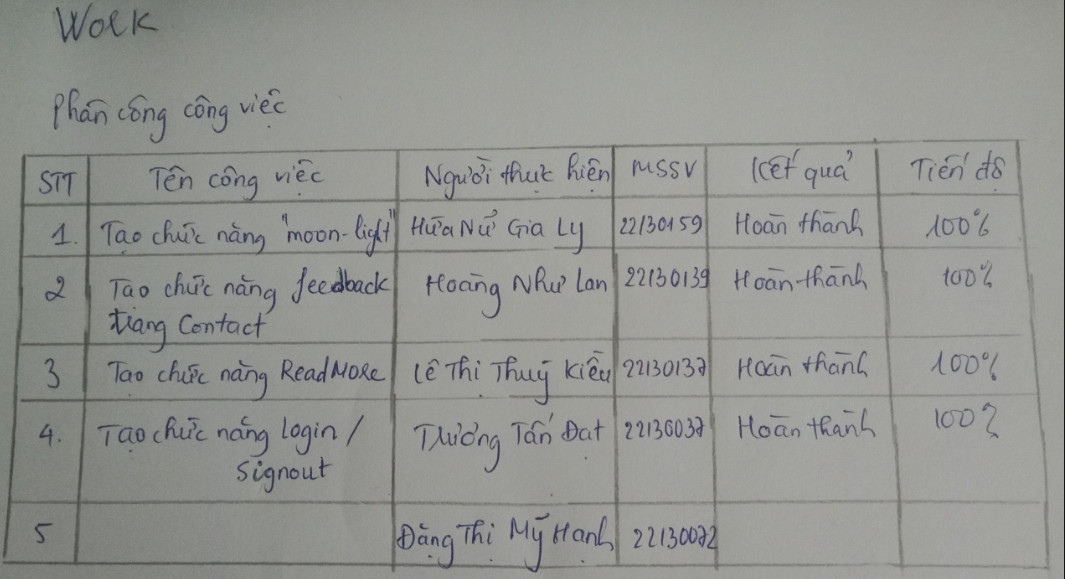 Work
Phân công công việc
STT Tên công việc Người thực hiện MSSV Kết quả Tiến độ
1. Tạo chức năng "moon-light" Hứa Nữ Gia Ly 22130159 Hoàn thành 100%
2 Tạo chức năng feedback Hoàng Như Lan 22130139 Hoàn thành 100%
trang Contact
3 Tạo chức năng ReadMore Lê Thị Thuý Kiều 22130137 Hoàn thành 100%
4. Tạo chức năng login / Trương Tấn Đạt 22130037 Hoàn thành 100%
Signout
5 Đặng Thị Mỹ Hạnh 22130072